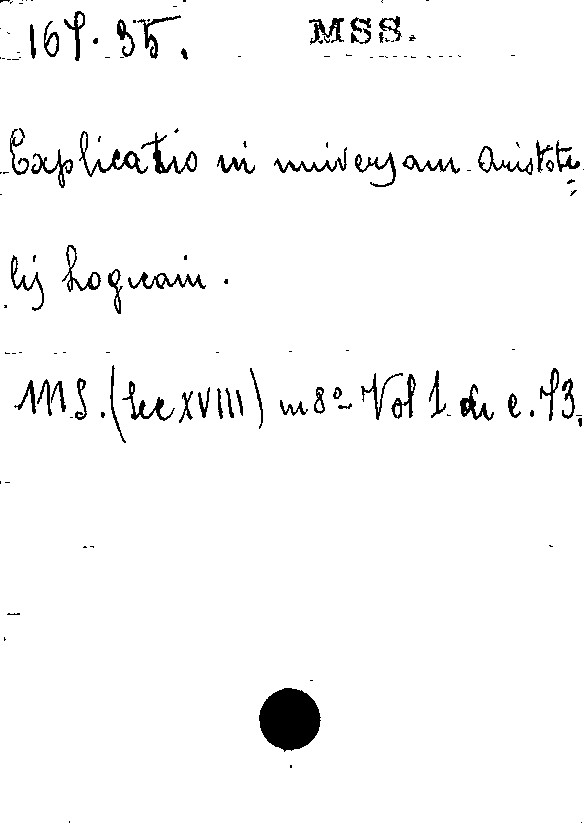 167.35. MSS.
Explicatio in universam Aristote=
lis Logicam.
MS. (Sec XVIII) in 8º Vol 1 di c. 73.